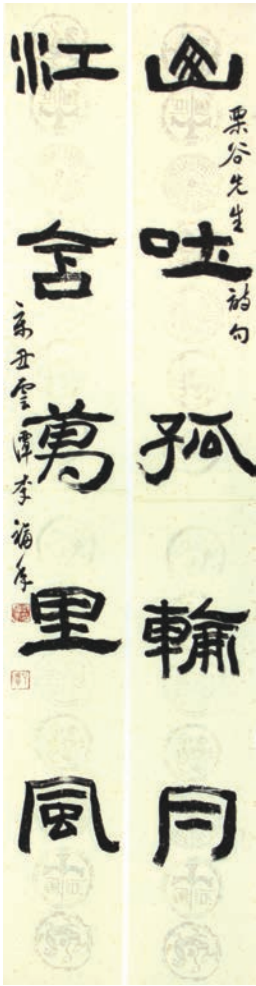 山吐孤輪月
栗谷先生詩句
江含萬里風
辛丑雲潭李福